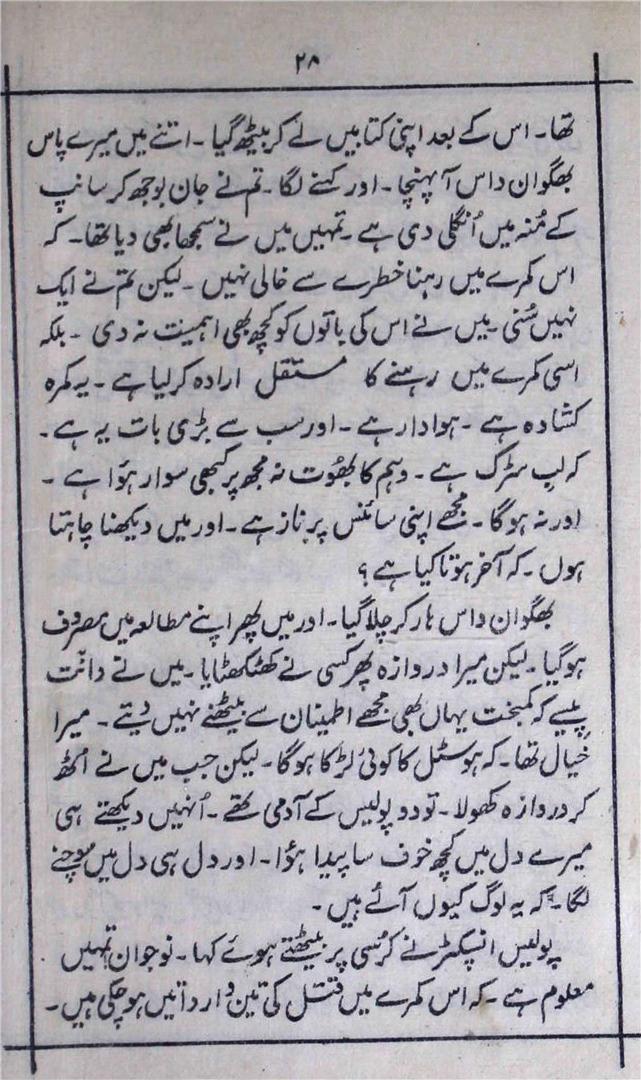 ۲۸
تھا۔ اس کے بعد اپنی کتابیں لے کر بیٹھ گیا۔ اتنے میں میرے پاس
بھگوان داس آ پہنچا۔ اور کہنے لگا۔ تم نے جان بوجھ کر سانپ
کے مُنہ میں اُنگلی دی ہے۔ تمہیں میں نے سمجھا بھی دیا تھا۔ کہ
اس کمرے میں رہنا خطرے سے خالی نہیں۔ لیکن تم نے ایک
نہیں سُنی۔ میں نے اس کی باتوں کو کچھ بھی اہمیت نہ دی۔ بلکہ
اسی کمرے میں رہنے کا مستقل ارادہ کر لیا ہے۔ یہ کمرہ
کشادہ ہے۔ ہوادار ہے۔ اور سب سے بڑی بات یہ ہے۔
کہ لبِ سڑک ہے۔ وہم کا بھُوت نہ مجھ پر کبھی سوار ہؤا ہے۔
اور نہ ہو گا۔ مجھے اپنی سائنس پر ناز ہے۔ اور میں دیکھنا چاہتا
ہوں۔ کہ آخر ہوتا کیا ہے؟
بھگوان داس ہار کر چلا گیا۔ اور میں پھر اپنے مطالعہ میں مصروف
ہو گیا۔ لیکن میرا دروازہ پھر کسی نے کھٹکھٹایا۔ میں نے دانت
پیسے کہ کمبخت یہاں بھی مجھے اطمینان سے بیٹھنے نہیں دیتے۔ میرا
خیال تھا۔ کہ ہوسٹل کا کوئی لڑکا ہوگا۔ لیکن جب میں نے اُٹھ
کر دروازہ کھولا۔ تو دو پولیس کے آدمی تھے۔ اُنہیں دیکھتے ہی
میرے دل میں کچھ خوف سا پیدا ہؤا۔ اور دل ہی دل میں سوچنے
لگا۔ کہ یہ لوگ کیوں آئے ہیں۔
پولیس انسپکٹر نے کرُسی پر بیٹھتے ہوئے کہا۔ نوجوان تمہیں
معلوم ہے۔ کہ اس کمرے میں قتل کی تین وارداتیں ہو چکی ہیں۔